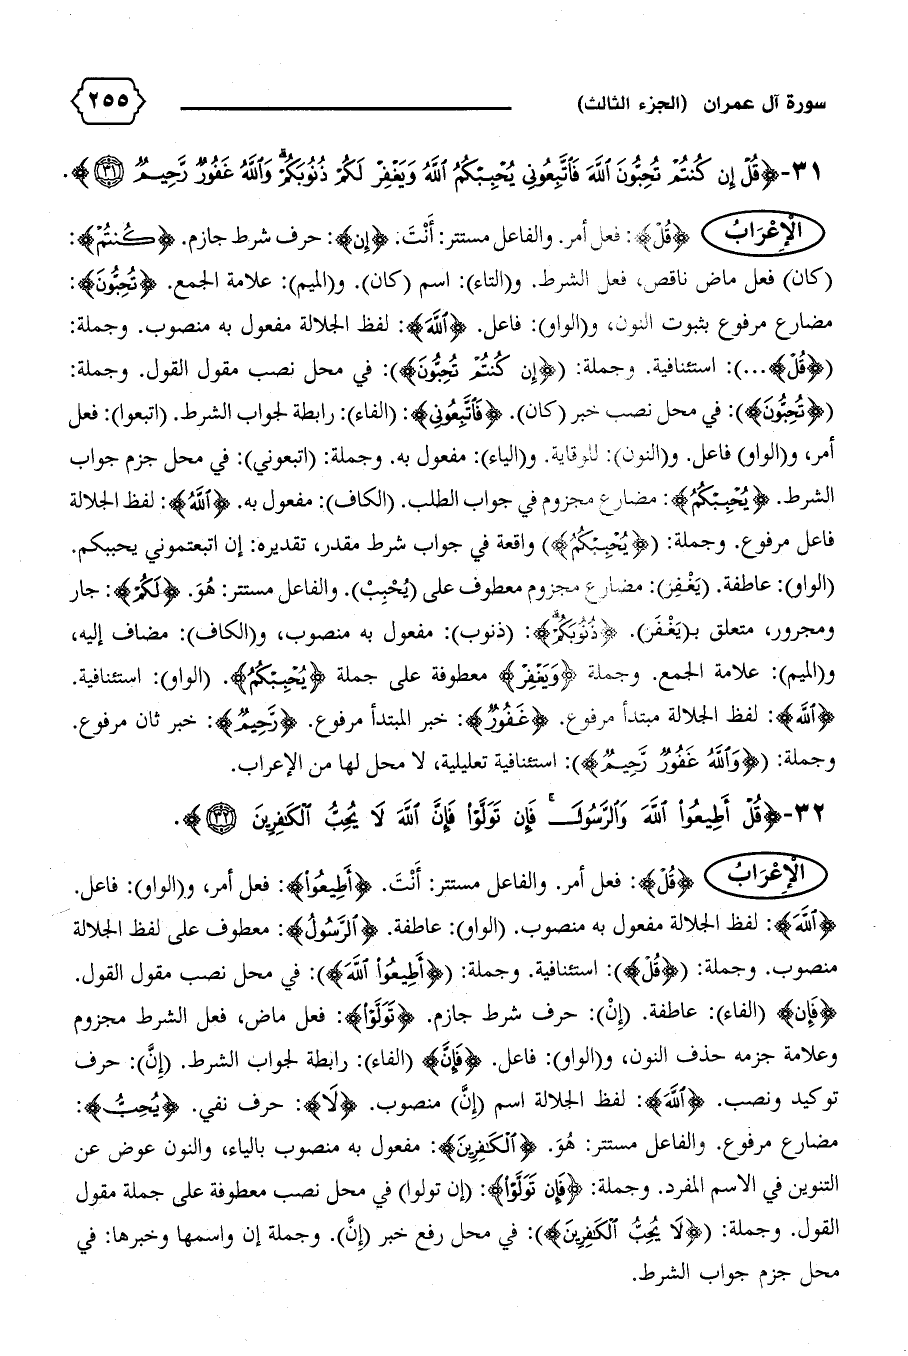 سورة آل عمران (الجزء الثالث)
٢٥٥
٣١-﴿قُلْ إِن كُنتُمْ تُحِبُّونَ ٱللَّهَ فَٱتَّبِعُونِي يُحْبِبْكُمُ ٱللَّهُ وَيَغْفِرْ لَكُمْ ذُنُوبَكُمْ ۗ وَٱللَّهُ غَفُورٌ رَّحِيمٌ ٣١﴾.
الْإِعْرَابُ ﴿قُلْ﴾: فعل أمر. والفاعل مستتر: أَنْتَ. ﴿إِن﴾: حرف شرط جازم. ﴿كُنتُمْ﴾:
(كان) فعل ماض ناقص، فعل الشرط. و(التاء): اسم (كان). و(الميم): علامة الجمع. ﴿تُحِبُّونَ﴾:
مضارع مرفوع بثبوت النون، و(الواو): فاعل. ﴿ٱللَّهَ﴾: لفظ الجلالة مفعول به منصوب. وجملة:
(﴿قُلْ﴾...): استئنافية. وجملة: (﴿إِن كُنتُمْ تُحِبُّونَ﴾): في محل نصب مقول القول. وجملة:
(﴿تُحِبُّونَ﴾): في محل نصب خبر (كان). ﴿فَٱتَّبِعُونِي﴾: (الفاء): رابطة لجواب الشرط. (اتبعوا): فعل
أمر، و(الواو) فاعل. و(النون): للوقاية. و(الياء): مفعول به. وجملة: (اتبعوني): في محل جزم جواب
الشرط. ﴿يُحْبِبْكُمُ﴾: مضارع مجزوم في جواب الطلب. (الكاف): مفعول به. ﴿ٱللَّهُ﴾: لفظ الجلالة
فاعل مرفوع. وجملة: (﴿يُحْبِبْكُمُ﴾) واقعة في جواب شرط مقدر، تقديره: إن اتبعتموني يحببكم.
(الواو): عاطفة. (يَغْفِرْ): مضارع مجزوم معطوف على (يُحْبِبْ). والفاعل مستتر: هُوَ. ﴿لَكُمْ﴾: جار
ومجرور، متعلق بـ(يَغْفَر). ﴿ذُنُوبَكُمْ ۗ﴾: (ذنوب): مفعول به منصوب، و(الكاف): مضاف إليه،
و(الميم): علامة الجمع. وجملة ﴿وَيَغْفِرْ﴾ معطوفة على جملة ﴿يُحْبِبْكُمُ﴾. (الواو): استئنافية.
﴿ٱللَّهُ﴾: لفظ الجلالة مبتدأ مرفوع. ﴿غَفُورٌ﴾: خبر المبتدأ مرفوع. ﴿رَّحِيمٌ﴾: خبر ثان مرفوع.
وجملة: (﴿وَٱللَّهُ غَفُورٌ رَّحِيمٌ﴾): استئنافية تعليلية، لا محل لها من الإعراب.
٣٢-﴿قُلْ أَطِيعُوا۟ ٱللَّهَ وَٱلرَّسُولَ ۖ فَإِن تَوَلَّوْا۟ فَإِنَّ ٱللَّهَ لَا يُحِبُّ ٱلْكَٰفِرِينَ ٣٢﴾.
الْإِعْرَابُ ﴿قُلْ﴾: فعل أمر. والفاعل مستتر: أَنْتَ. ﴿أَطِيعُوا۟﴾: فعل أمر، و(الواو): فاعل.
﴿ٱللَّهَ﴾: لفظ الجلالة مفعول به منصوب. (الواو): عاطفة. ﴿ٱلرَّسُولُ﴾: معطوف على لفظ الجلالة
منصوب. وجملة: (﴿قُلْ﴾): استئنافية. وجملة: (﴿أَطِيعُوا۟ ٱللَّهَ﴾): في محل نصب مقول القول.
﴿فَإِن﴾ (الفاء): عاطفة. (إِنْ): حرف شرط جازم. ﴿تَوَلَّوْا۟﴾: فعل ماض، فعل الشرط مجزوم
وعلامة جزمه حذف النون، و(الواو): فاعل. ﴿فَإِنَّ﴾ (الفاء): رابطة لجواب الشرط. (إِنَّ): حرف
توكيد ونصب. ﴿ٱللَّهَ﴾: لفظ الجلالة اسم (إنَّ) منصوب. ﴿لَا﴾: حرف نفي. ﴿يُحِبُّ﴾:
مضارع مرفوع. والفاعل مستتر: هُوَ. ﴿ٱلْكَٰفِرِينَ﴾: مفعول به منصوب بالياء، والنون عوض عن
التنوين في الاسم المفرد. وجملة: ﴿فَإِن تَوَلَّوْا۟﴾: (إن تولوا) في محل نصب معطوفة على جملة مقول
القول. وجملة: (﴿لَا يُحِبُّ ٱلْكَٰفِرِينَ﴾): في محل رفع خبر (إنَّ). وجملة إن واسمها وخبرها: في
محل جزم جواب الشرط.